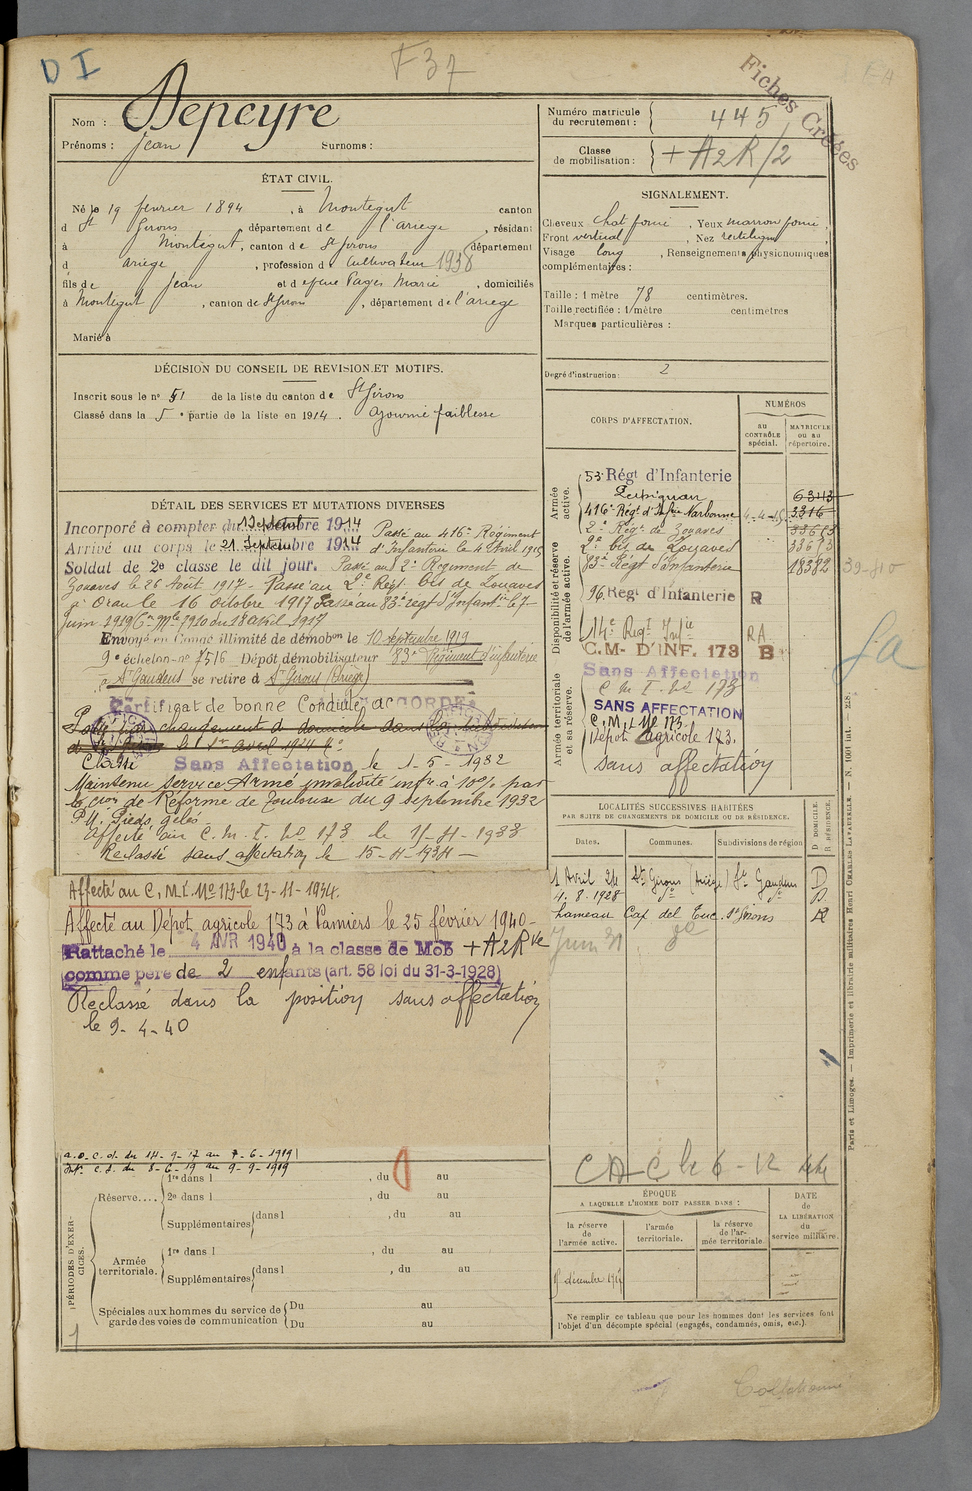 D I
F 37
Fiches Créées
Nom : Depeyre
Prénoms : Jean Surnoms :
ÉTAT CIVIL.
Né le 19 février 1894, à Montegut canton
d St Girons département de l'ariege, résidant
à Montegut, canton de St Girons département
d ariege, profession de Cultivateur 1938
fils de Jean et d efeue Pages Marie, domiciliés
à Montegut, canton de St Girons, département de l'ariege
Marié à
DÉCISION DU CONSEIL DE REVISION ET MOTIFS.
Inscrit sous le n° 51 de la liste du canton de St Girons
Classé dans la 5e partie de la liste en 1914. Ajourné faiblesse
DÉTAIL DES SERVICES ET MUTATIONS DIVERSES
Incorporé à compter du 1 Septembre 1914 Passé au 416e Régiment
Arrivé au corps le 21 Septembre 1914 d'Infanterie le 4 Avril 1915
Soldat de 2e classe le dit jour. Passé au 2e Régiment de
Zouaves le 26 Août 1917 - Passé au 2e Régt bis de Zouaves
à Oran le 16 octobre 1917 Passé au 83e regt d'Infantie le 7
Juin 1919 (Cn Mle 7910 du 18 avril 1917
Envoyé en Congé illimité de démobon le 10 Septembre 1919
9e échelon n° 7516 Dépôt démobilisateur 83e Régiment d'infanterie
à St Gaudens se retire à St Girons (Ariège)
Certificat de bonne Conduite ACCORDÉ
Passé par changement de domicile dans la subdivision
de St Girons le 1er avril 1924
Classé Sans Affectation le 1-5-1932
Maintenu service Armé invalidité infre à 10% par
la Cion de Réforme de Toulouse du 9 septembre 1932
P.U. Pieds gelés
Affecté au C.M.I. No 173 le 15-4-1933
Reclassé sans affectation le 15-4-1934
Affecté au C.M.I. No 173 le 23-11-1934.
Affecté au Dépôt agricole 173 à Pamiers le 25 février 1940-
Rattaché le 4 AVR 1940 à la classe de Mob + A2Rve
comme père de 2 enfants (art. 58 loi du 31-3-1928)
Reclassé dans la position sans affectation
le 9-4-40
a.o.c.d. du 14-9-17 au 7-6-1919
Int. c.d. du 8-6-19 au 9-9-1919
PÉRIODES D'EXERCICES.
Réserve.... 1re dans l , du au
2e dans l , du au
Supplémentaires dans l , du au
Armée territoriale. 1re dans l , du au
Supplémentaires dans l , du au
Spéciales aux hommes du service de garde des voies de communication Du au
Du au
Numéro matricule du recrutement : 445
Classe de mobilisation : + A2R/2
SIGNALEMENT.
Cheveux chat foncé, Yeux marron foncé,
Front vertical, Nez rectiligne,
Visage long, Renseignements physionomiques
complémentaires :
Taille : 1 mètre 78 centimètres.
Taille rectifiée : 1 mètre centimètres
Marques particulières :
Degré d'instruction : 2
CORPS D'AFFECTATION.
NUMÉROS
AU CONTRÔLE spécial.
MATRICULE OU AU répertoire.
Armée active.
53e Régt d'Infanterie
Perpignan 6343
416e Régt d'Infrie Narbonne 3316
2e Régt de Zouaves 33653
2e bis de Zouaves 33653
83e Régt d'Infanterie 18382
39-810
Disponibilité et réserve de l'armée active.
96 Régt d'Infanterie R
14e Regt Infie RA
C.M- D'INF. 173 B
Sans Affectation
Armée territoriale et sa réserve.
C M I No 173
SANS AFFECTATION
C.M.I No 173
Dépôt agricole 173.
Sans affectation
LOCALITÉS SUCCESSIVES HABITÉES
PAR SUITE DE CHANGEMENTS DE DOMICILE OU DE RÉSIDENCE.
D DOMICILE.
R RÉSIDENCE.
Dates. Communes. Subdivisions de région
1 Avril 24 St Girons (Ariège) St Gaudens D
4.8.1928 do do D
hameau Cap del Tuc. St Girons R
Juin 31 do
CAC le 6-12
ÉPOQUE
A LAQUELLE L'HOMME DOIT PASSER DANS :
la réserve de l'armée active.
l'armée territoriale.
la réserve de l'armée territoriale.
DATE DE LA LIBÉRATION du service militaire.
Ne remplir ce tableau que pour les hommes dont les services font
l'objet d'un décompte spécial (engagés, condamnés, omis, etc.).
Paris et Limoges. — Imprimerie et librairie militaires Henri CHARLES-LAVAUZELLE. — N. 1001 int. — 2/8.